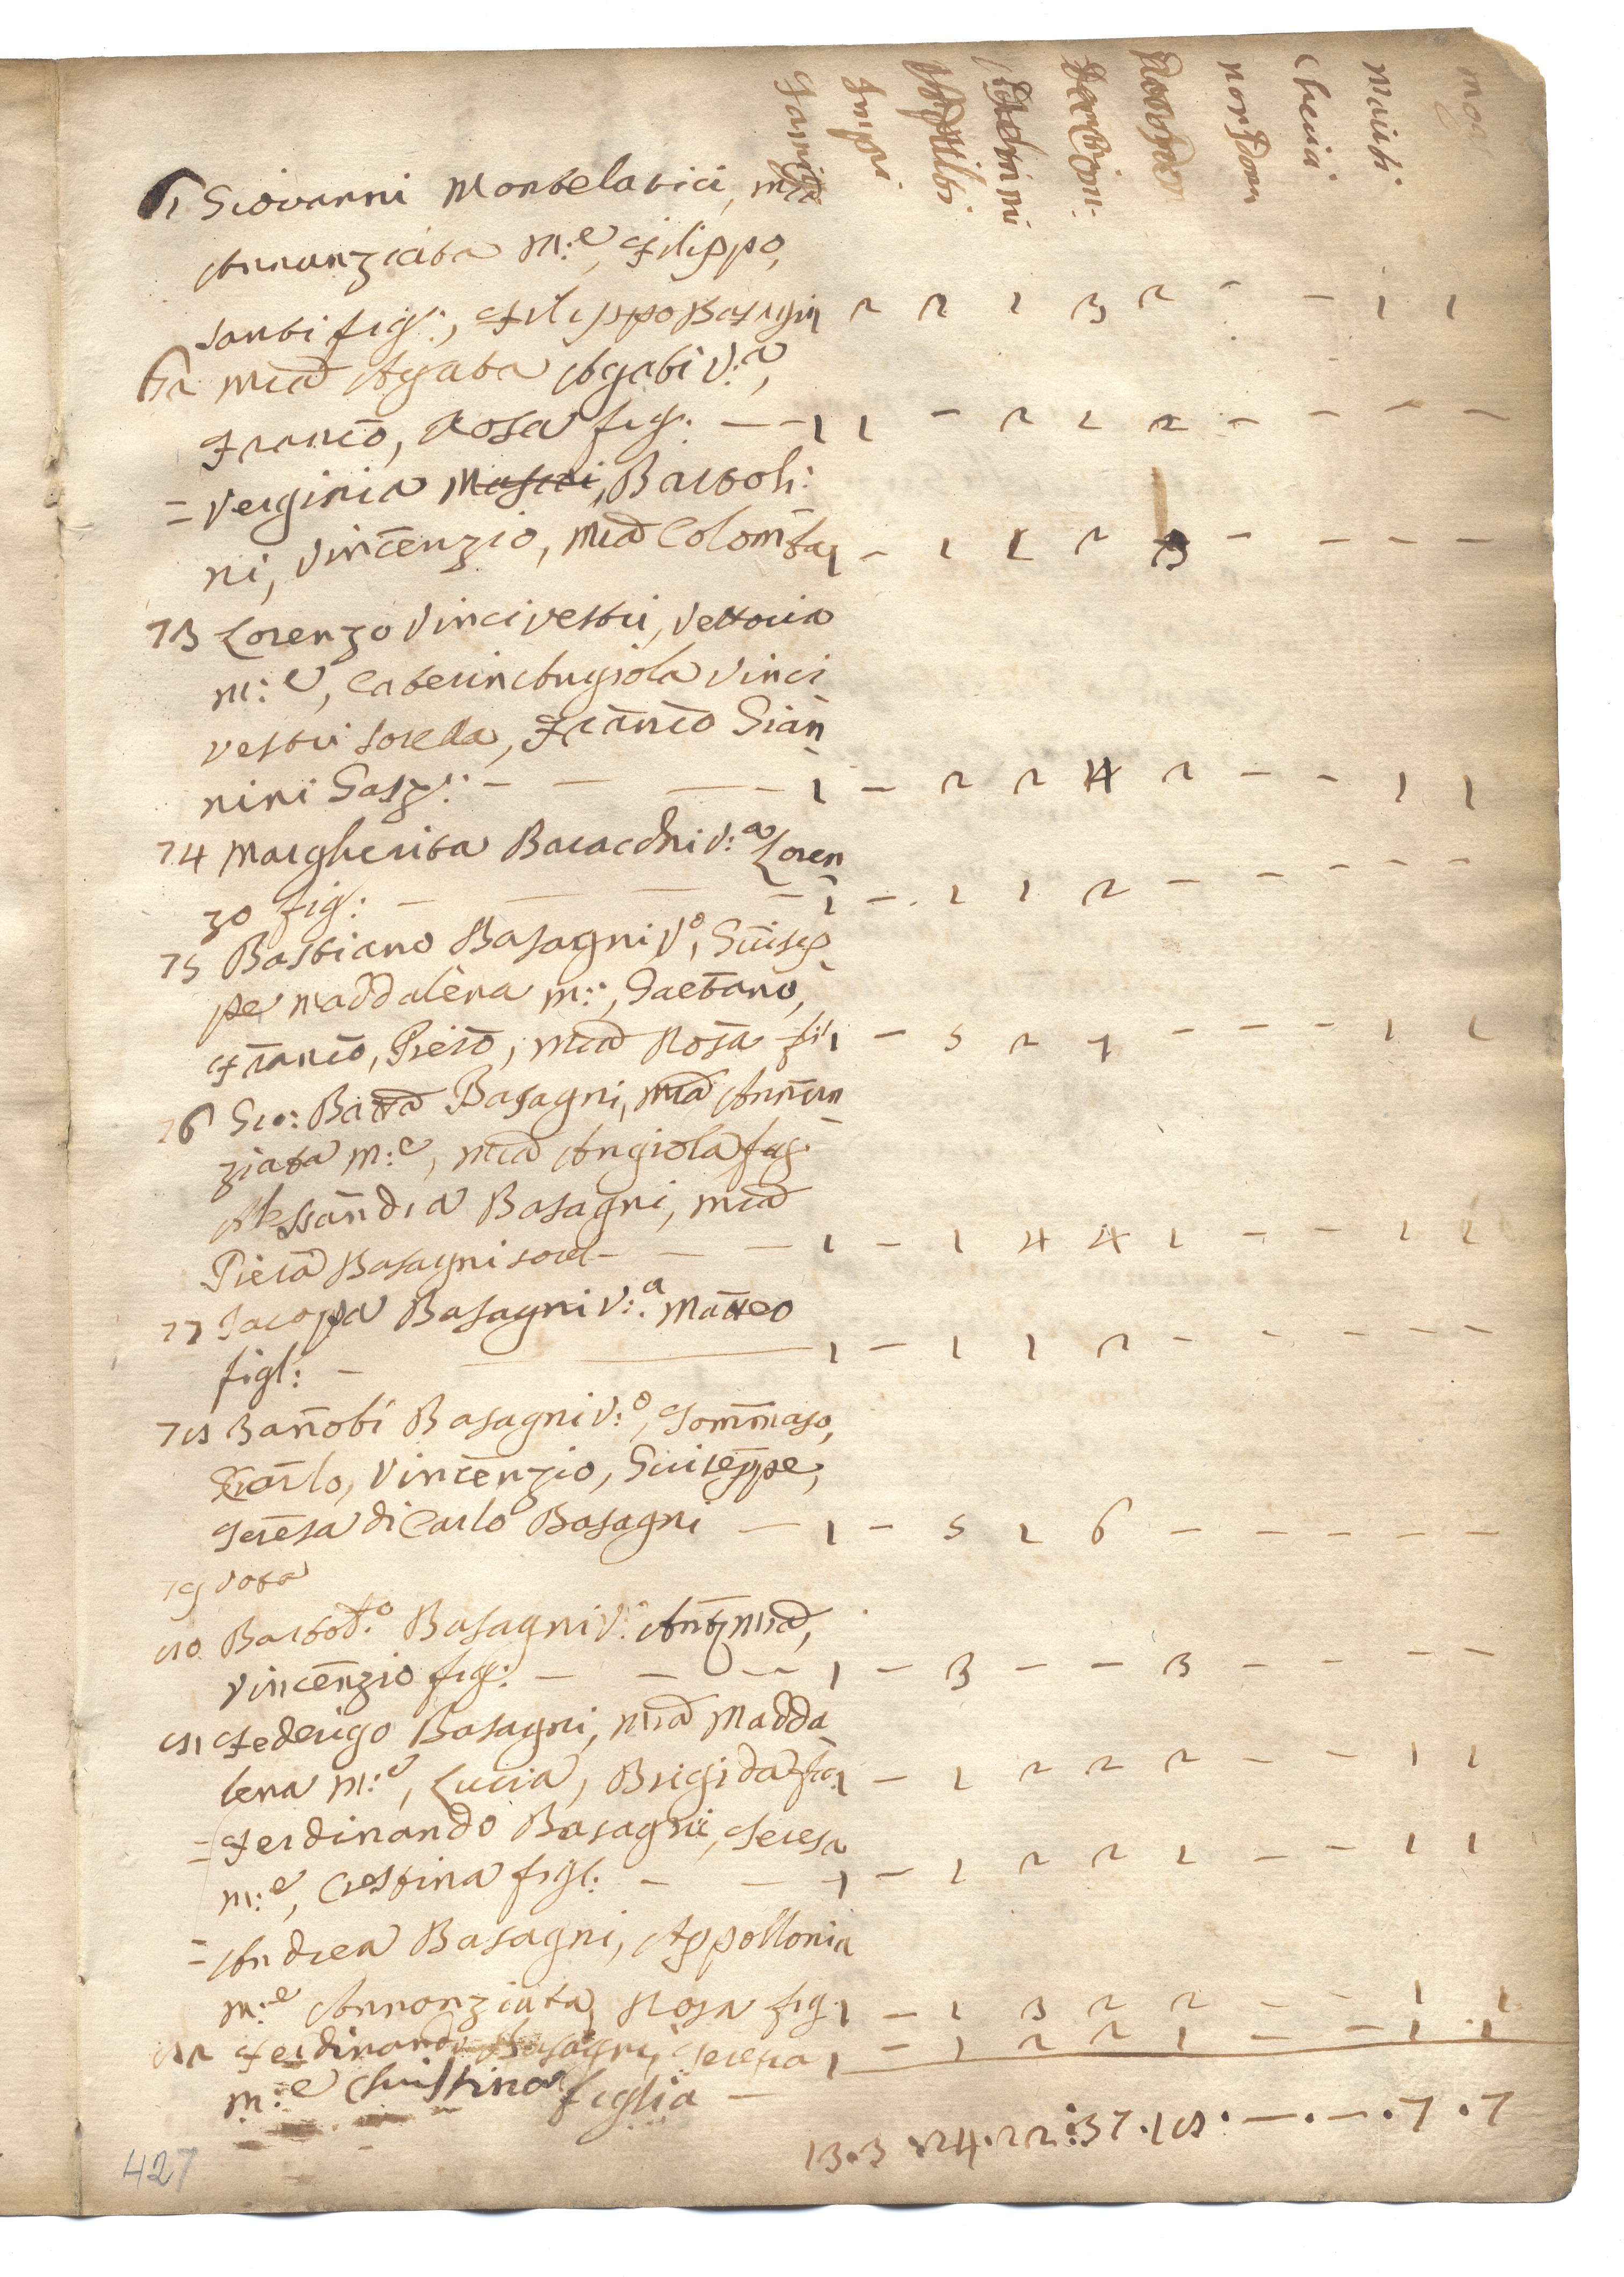 Famig
Impi
nor Don
Cheri
Mariti
mog
61 Giovanni Montelatici, Mia
Annunziata M:e, Filippo,
Santi figl:, Filippo Basagni 1 2 2 1 3 2 - - 1 1
62 Mia Agata Agati V:a,
Franco, Rosa figl: - - 1 1 - 2 1 2 - - - -
= Verginia Bartoli:
ni, Vincenzio, Mia Colomba 1 - 1 1 2 3 - - - -
73 Lorenzo Vincivestri, Vettoria
m:e, Caterin Angiola Vinci
vestri sorella, Franco Gian
nini Garz: - - - - 1 - 2 2 4 2 - - 1 1
74 Margherita Baracchi V:a Loren
zo fig: - - - - 1 - 1 1 2 - - - - -
75 Bastiano Basagni Vo, Giusep
pe Maddalena m:e, Gaetano,
Franco, Piero, Mia Rosa fi 1 - 5 2 7 - - - 1 1
76 Gio: Batta Basagni, Mia Annun
ziata M:e, Mia Angiola fig
Alessandra Basagni, Mia
Piera Basagni sorel - - - 1 - 1 4 4 1 - - 1 1
77 Jacopa Basagni V:a Matteo
figl: - - 1 - 1 1 2 - - - - -
78 Zanobi Basagni V:o, Tommaso,
Carlo, Vincenzio, Giuseppe,
Teresa di Carlo Basagni - 1 - 5 1 6 - - - - -
79 Vota
80 Bartolo:o Basagni V: Ant Mia,
Vincenzio fig: - - - 1 - 3 - - 3 - - - -
81 Federigo Basagni, Mia Madda
lena M:e, Lucia, Brigida fi 1 - 1 2 2 2 - - 1 1
= Ferdinando Basagni, Teresa
m:e, Crestina figl: - - 1 - 1 2 2 1 - - 1 1
= Andrea Basagni, Appollonia
m:e Annonziata, Rosa fig 1 - 1 3 2 2 - - 1 1
82 Ferdinando Basagni Teresa 1 - 1 2 2 1 - - 1 1
m:e Christina figlia -
13 . 3 . 24 . 22 : 37 . 18 . - . - . 7 . 7
427